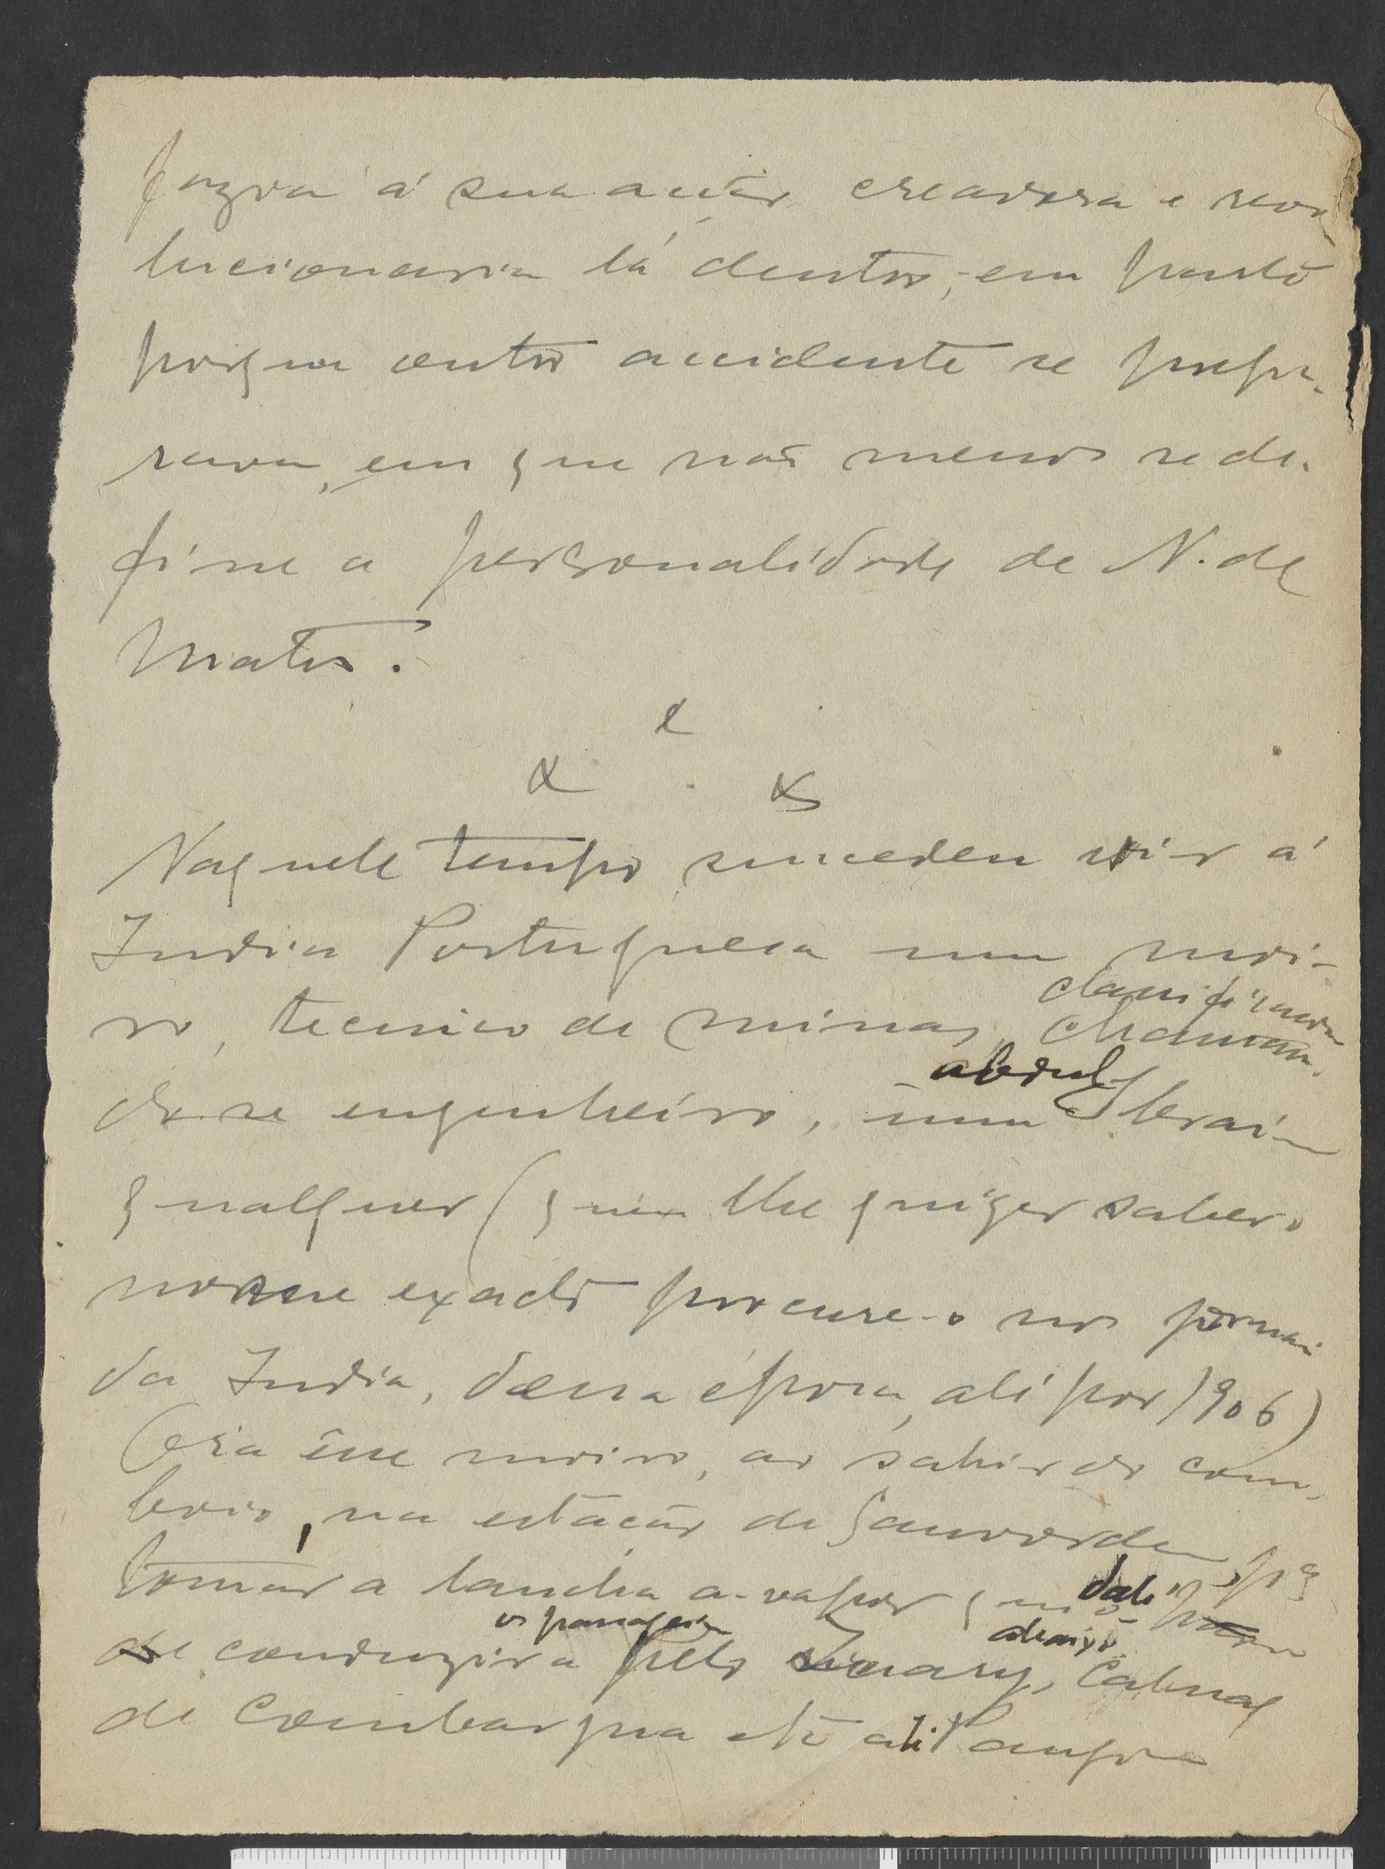 fazia á sua acção creadora e revo-
lucionaria lá dentro, em parte
porque outro accidente se prepa-
rava, em que não menos se de-
fine a personalidade de N. de
Matos.
x
x x
Naquele tempo succedeu vir á
India Portuguesa um moi-
ro, tecnico de minas,
classificava
chamava
do-se engenheiro, um Ibraim
abdul
qualquer (quem lhe quizer saber o
nome exacto procure-o nos jornais
da India, dessa época, ali por 1906)
Ora esse moiro, ao sahir do com-
boio, na estação de Sanvordem, pª
tomar a lancha a-vapor que dali
os passageiros abaixo
conduzira pelo Zuary, Cabnal
de Combarjua até ali Pangim